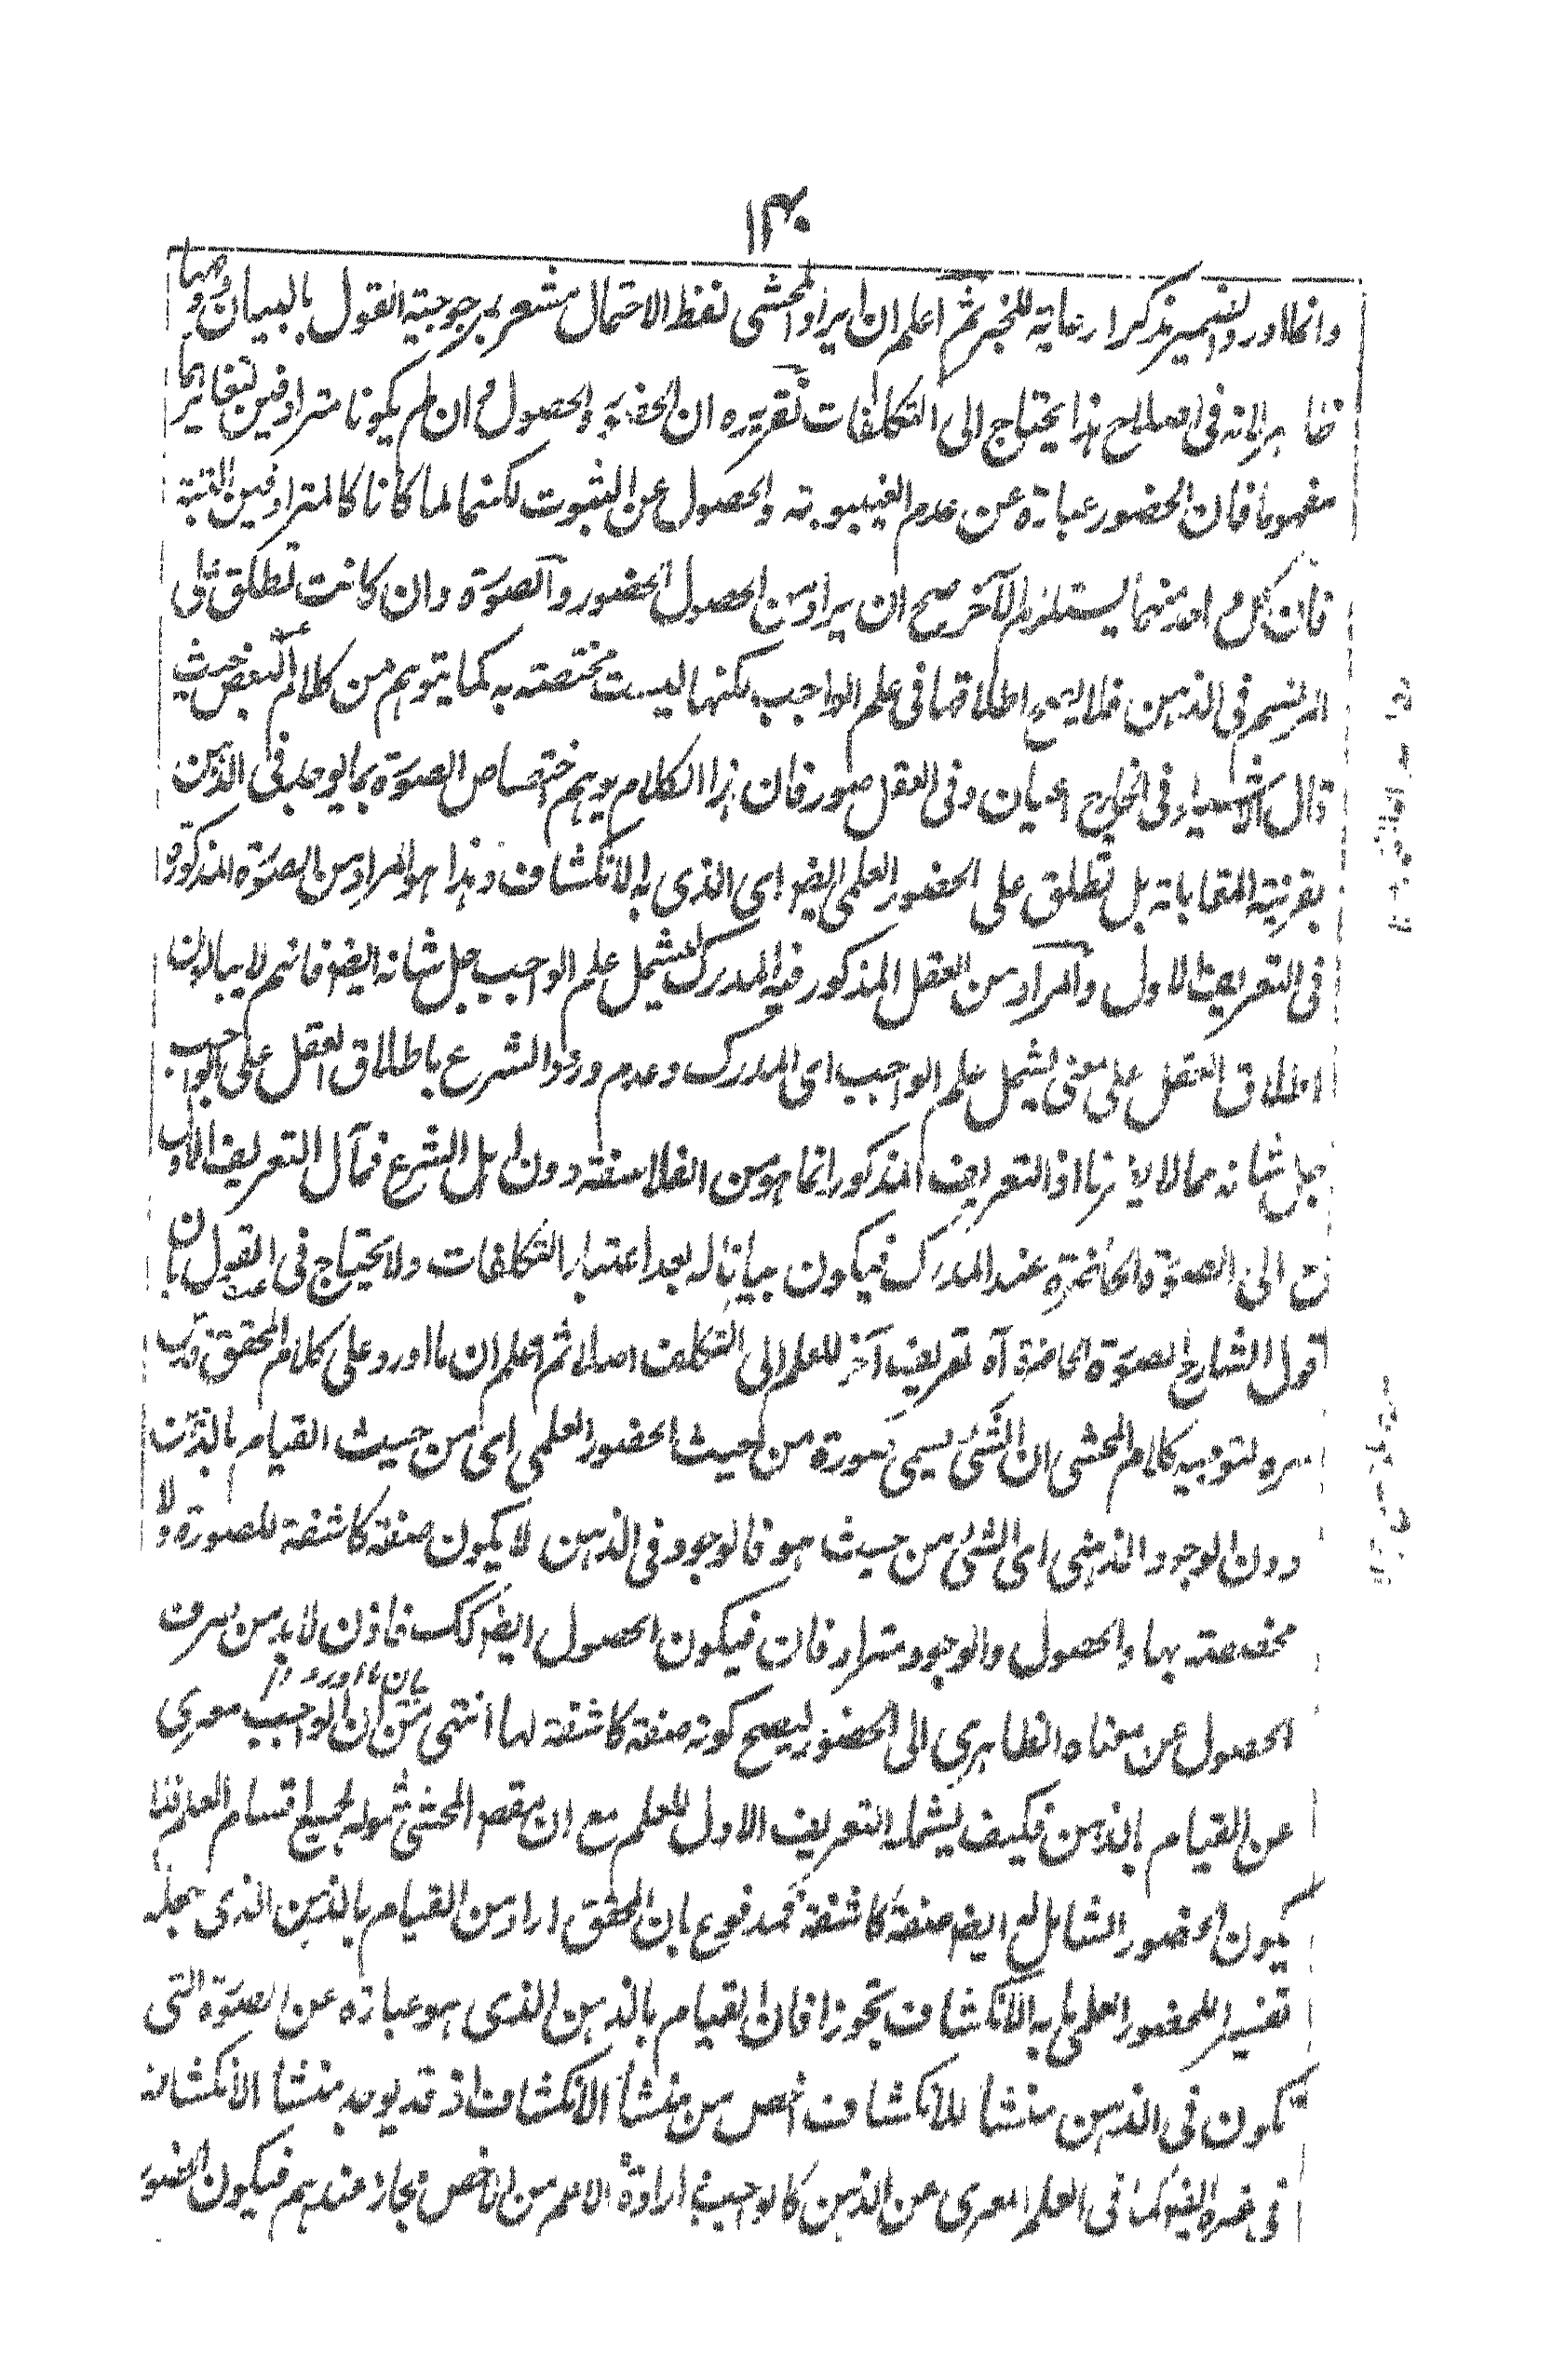 ١٣٠
وانما اورد الضمير مذكرا رعاية للخبر ثم اعلم ان ايراد المحشى لفظ الاحتمال مشعر بمرجوحية القول بالبيان وجهها
ظاهر لانه فى اصطلاح هذا يحتاج الى التكلفات تقريره ان الحضور والحصول وان لم يكونا مترادفين لتغايرهما
مفهوما فان الحضور عبارة عن عدم الغيبوبة والحصول عن الثبوت لكنهما لما كانا كالمترادفين البتة
فان كل واحد منهما يستلزم الآخر صح ان يراد من الحصول الحضور والصورة وان كانت تطلق على
المرتسم فى الذهن فلا يصح اطلاقها فى علم الواجب لكنها ليست مختصة به كما يتوهم من كلام البعض حيث
قال الاشياء فى الخارج اعيان وفى العقل صور فان هذا الكلام يوهم اختصاص الصورة بما يوجد فى الذهن
بقرينة المقابلة بل تطلق على الحضور العلمى ايضا اى الذى به الانكشاف وهذا هو المراد من الصورة المذكورة
فى التعريف الاول والمراد من العقل المذكور فيه المدرك ليشمل علم الواجب جل شانه ايضا فانهم لا يبالون
اطلاق العقل على معنى يشمل علم الواجب اى المدرك وعدم ورود الشرع باطلاق العقل على الواجب
جل شانه مما لا يضرنا اذ التعريف المذكور انما هو من الفلاسفة دون اهل الشرع فمآل التعريف الاول
الى الصورة الحاضرة عند المدرك فيكون بيانا له بعد اعتبار التكلفات ولا يحتاج فى القول بان
قول الشارح الصورة الحاضرة آه تعريف آخر للعلم الى التكلف اصلا ثم اعلم ان ما اورد على كلام المحقق قدس
سره لتوجيه كلام المحشى ان الشئ يسمى صورة من حيث الحضور العلمى اى من حيث القيام بالذهن
دون الوجود الذهنى اى الشئ من حيث هو فالوجود فى الذهن لا يكون صفة كاشفة للصورة ولا
مخصصة بها والحصول والوجود مترادفان فيكون الحصول ايضا كك فاذن لا بد من صرف
الحصول عن معناه الظاهرى الى الحضور ليصح كونه صفة كاشفة لها انتهى من ان الواجب معرى
عن القيام بالذهن فكيف يشمله التعريف الاول للعلم مع ان مقصد المحشى شموله لجميع اقسام العلم فلا
يكون الحضور الشامل له ايضا صفة كاشفة فمدفوع بان المحقق اراد من القيام بالذهن الذى جعله
تفسيرا للحضور العلمى ما به الانكشاف تجوزا فان القيام بالذهن الذى هو عبارة عن الصورة التى
تكون فى الذهن منشأ للانكشاف اخص من منشأ الانكشاف اذ قد يوجد منشأ الانكشاف
فى غيره ايضا كما فى العلم المعرى عن الذهن كالواجب ارادة الاعم من الاخص مجاز عندهم فيكون الحضور